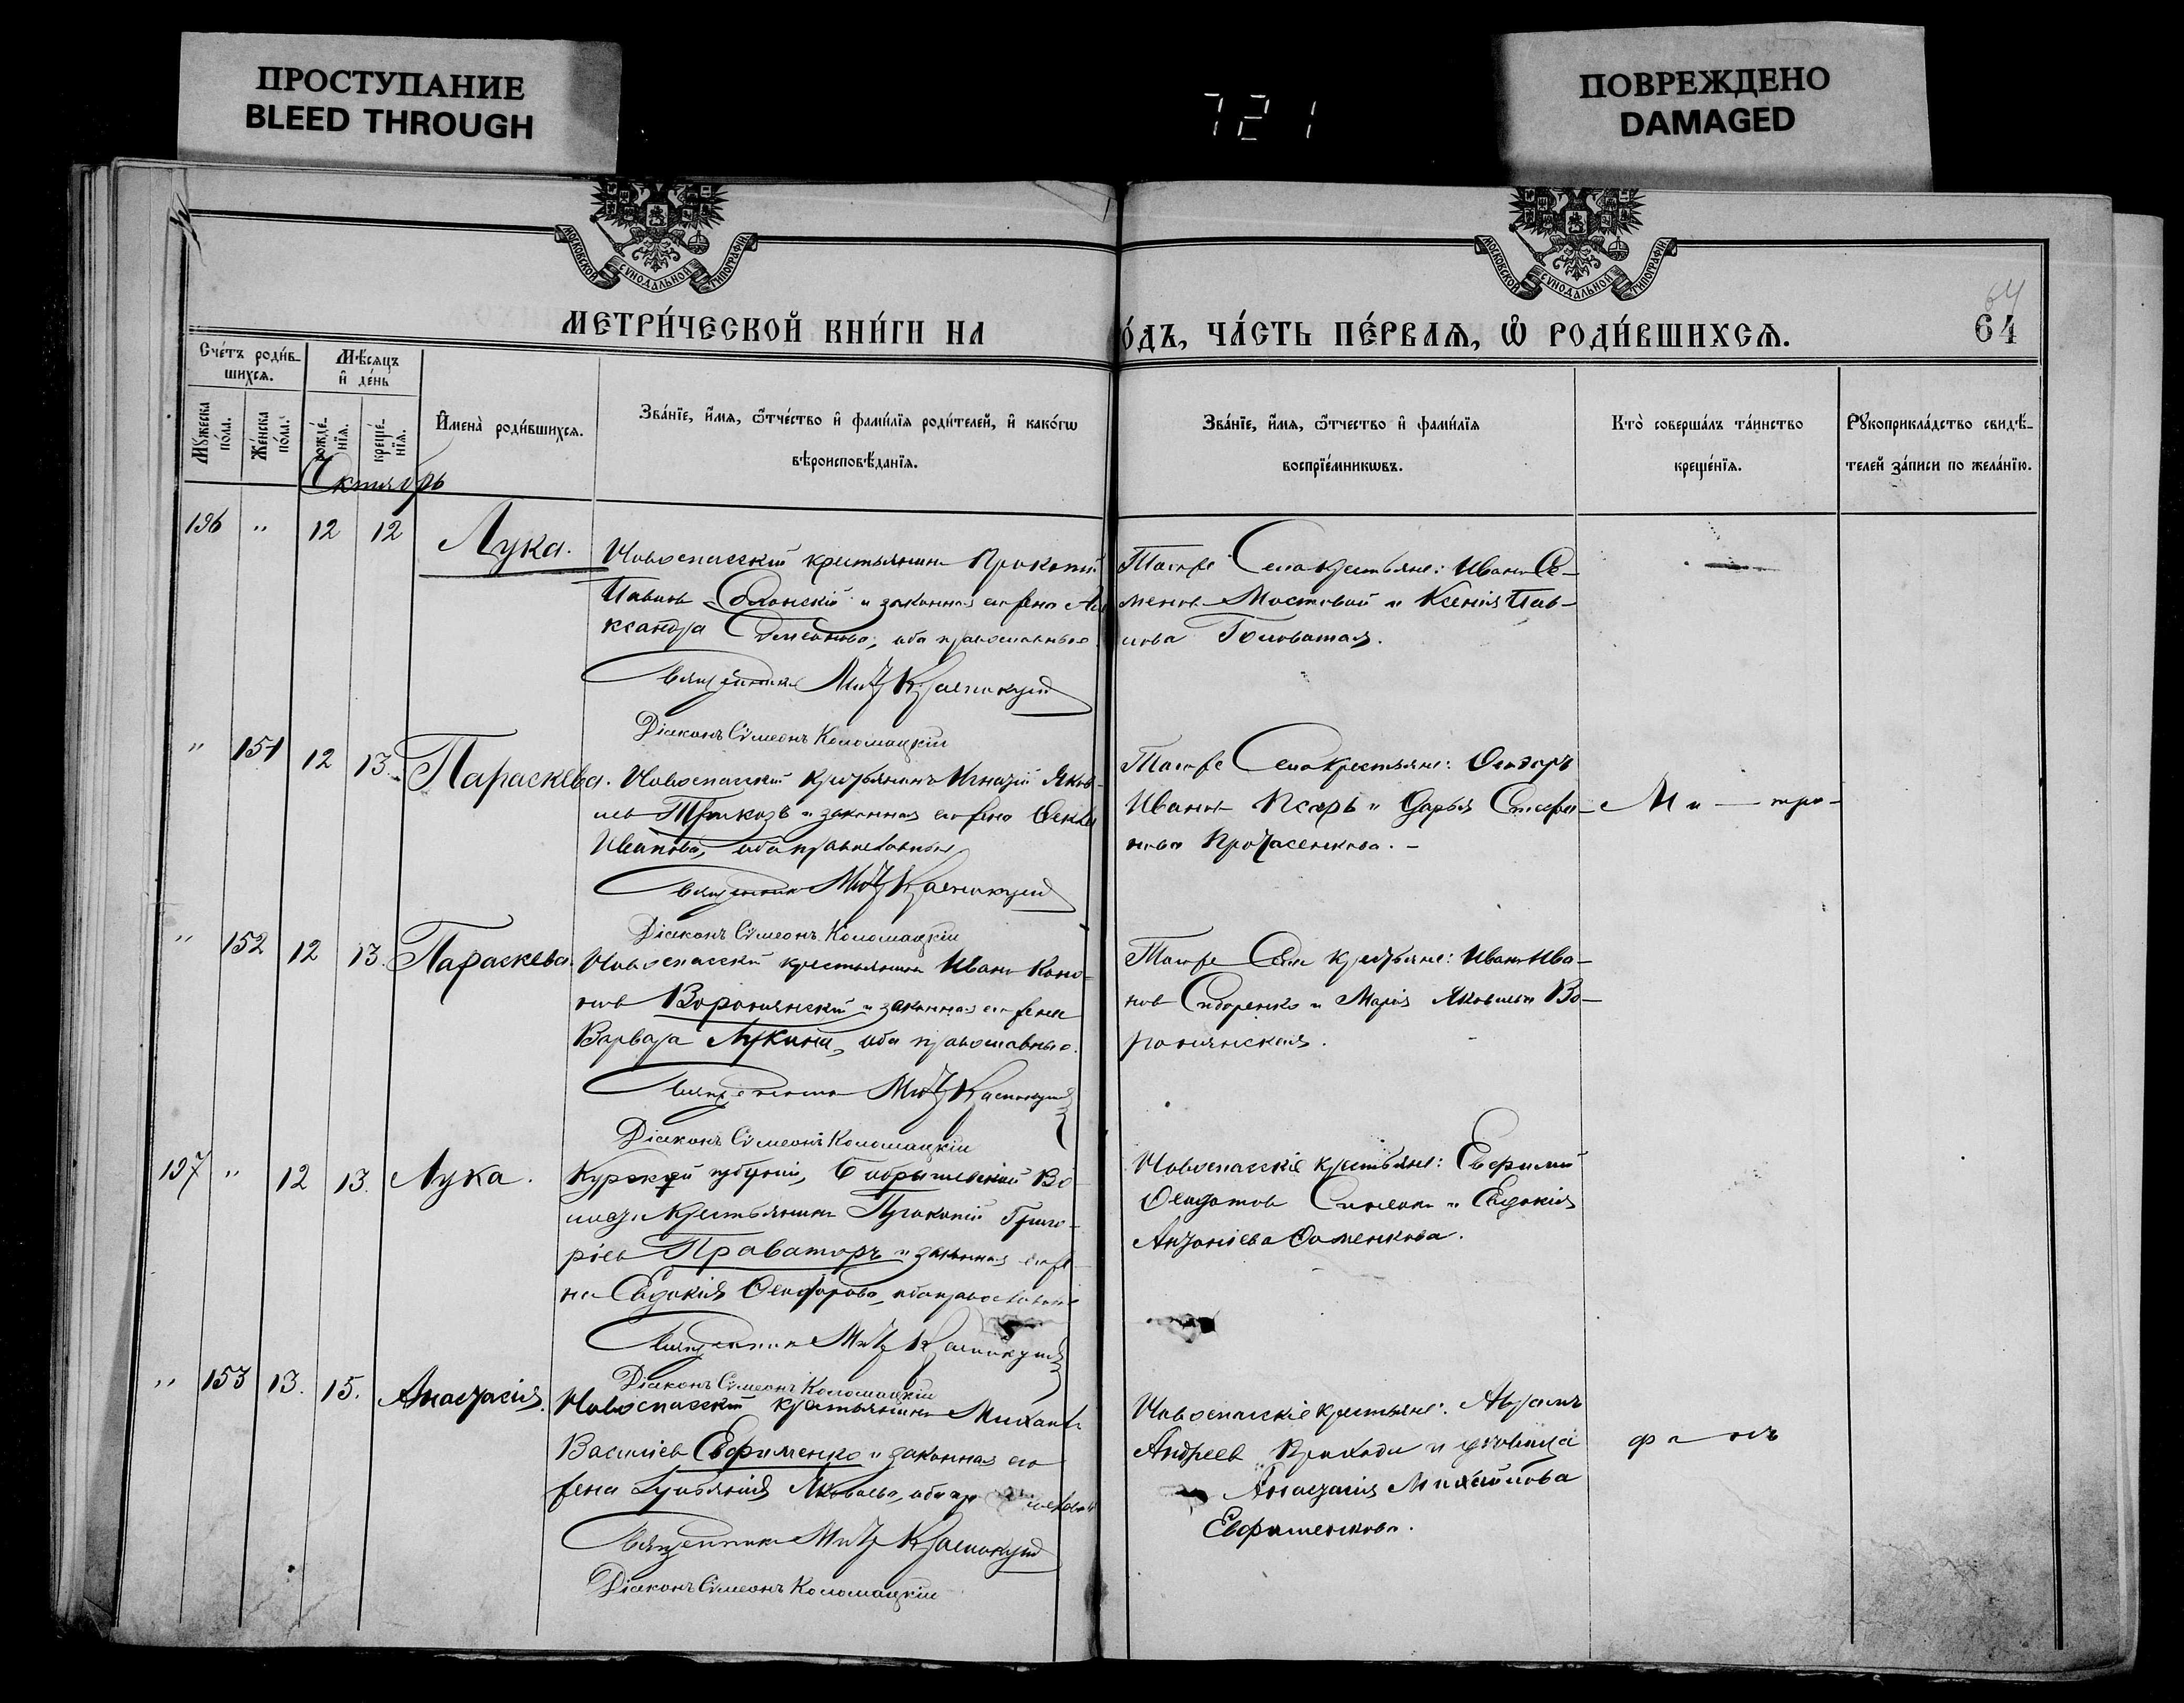 ПРОСТУПАНИЕ
BLEED THROUGH
721
ПОВРЕЖДЕНО
DAMAGED
МОСКОВСКОЙ СѴНОДАЛЬНОЙ ТИПОГРАФІИ
МОСКОВСКОЙ СѴНОДАЛЬНОЙ ТИПОГРАФІИ
МЕТРИ́ЧЕСКОЙ КНИ́ГИ НА
О́ДЪ, ЧА́СТЬ ПЕ́РВАѦ, Ѡ҆ РОДИ́ВШИХСѦ.
64
64
Сче́тъ роди́в-
шихсѧ.
Мѣ́сяцъ
и҆ де́нь
Мꙋжеска
по́ла.
Же́нска
по́ла.
рожде́-
нїѧ.
креще́-
нїѧ.
И҆мена̀ роди́вшихсѧ.
Зва́нїе, и҆́мѧ, ѻ҆́тчество и҆ фами́лїѧ роди́телей, и҆ како́гѡ
вѣроисповѣ́данїѧ.
Зва́нїе, и҆́мѧ, ѻ҆́тчество и҆ фами́лїѧ
воспрїе́мникѡвъ.
Кто̀ соверша́лъ та́инство
креще́нїѧ.
Рꙋкоприкла́дство свидѣ́-
телей за́писи по жела́нїю.
Октябрь
196 " 12 12 Лука.
Новоспасскій крестьянинъ Прокопій
Павловъ и законная его жена Але
ксандра Симеонова, оба православные
Священникъ Мит Краснокут
Діаконъ Сѵмеонъ Коломацкій
Того же Села крестьяне: Иванъ Се-
меновъ Мостовой и Ксенія Пав-
лова Головатая.
" 151 12 13. Параскева.
Новоспасскій крестьянинъ Игнатій Яков-
левъ и законная его жена Ѳекла
Иванова, оба православные
Священникъ Мит Краснокут
Діаконъ Сѵмеонъ Коломацкій
Того же Села Крестьяне: Ѳеодоръ
Ивановъ Псарь и Дарья Стефа-
нова Протасенкова. -
Ми — тро-
" 152 12 13. Параскева.
Новоспасскій крестьянинъ Иванъ Коно-
новъ Воронянскій и законная его жена
Варвара Лукина, оба православные.
Священникъ Мит Краснокут
Діаконъ Сѵмеонъ Коломацкій
Того же Села крестьяне: Иванъ Ива-
новъ Сидоренко и Марія Яковлева Во-
ронянская.
197 " 12 13. Лука.
Курской губерніи, Во-
лости Крестьянинъ Прокопій Григо-
ріевъ Праваторъ и законная его же
на Евдокія Ѳеодорова, оба православные
Священникъ Мит Краснокут
Діаконъ Сѵмеонъ Коломацкій
Новоспасскіе крестьяне: Евфимій
Ѳеодотовъ и Евдокія
Антоніева Ѳоменкова.
" 153 13. 15. Анастасія.
Новоспасскій крестьянинъ Михаилъ
Василіевъ Евфименко и законная его
жена Яковлева, оба православные
Священникъ Мит Краснокут
Діаконъ Сѵмеонъ Коломацкій
Новоспасскіе крестьяне: Аврамъ
Андреевъ Приходи и дѣвица
Анастасія Михайлова
Евфименкова.
фановъ